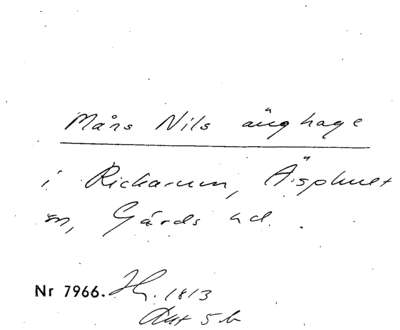 Måns Nils änghage
i Rickarum, Äsphult
sn, Gärds hd.
Nr 7966. H. 1813
Akt 5 b